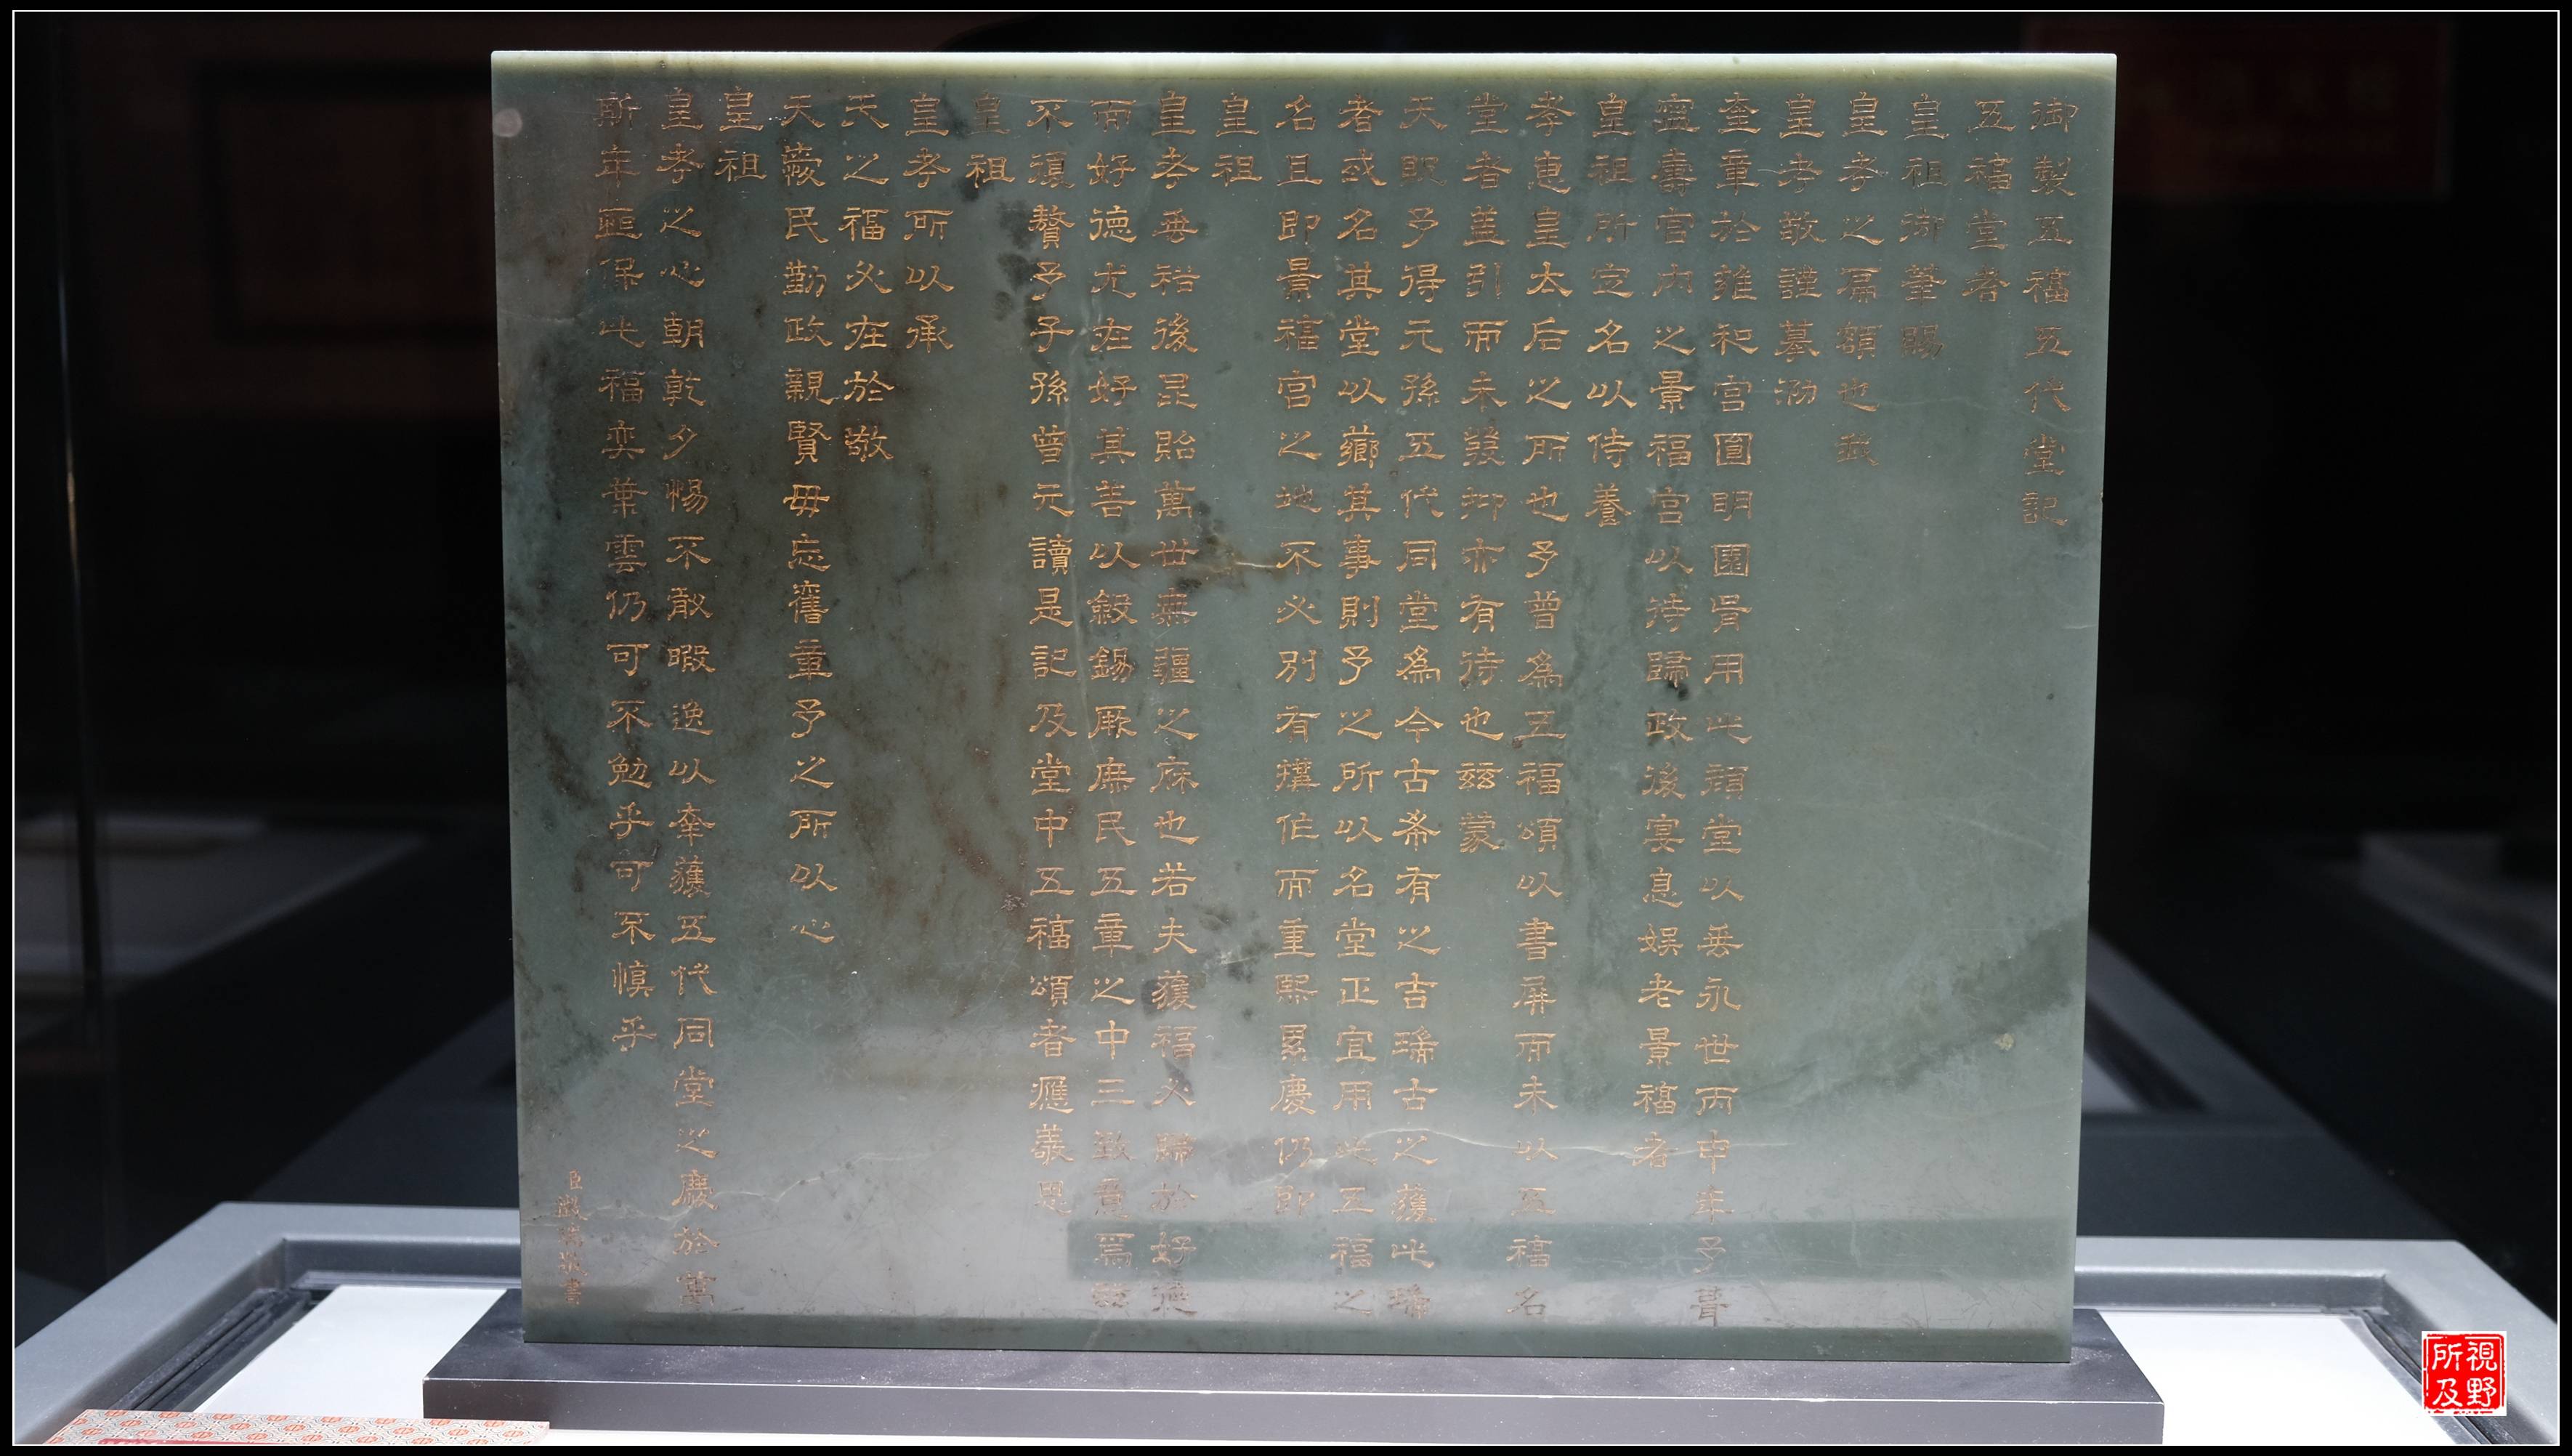 御製五福五代堂記
五福堂者
皇祖御筆賜
皇考之扁額也我
皇考敬謹摹泐
奎章於雍和宮圓明園胥用此顏堂以垂永世丙申年予葺
寧壽宮內之景福宮以待歸政後宴息娛老景福者
皇祖所定名以侍養
孝惠皇太后之所也予曾為五福頌以書屏而未以五福名
堂者蓋引而未發抑亦有待也茲蒙
天貺予得元孫五代同堂為今古希有之吉瑞古之獲此瑞
者或名其堂以薌其事則予之所以名堂正宜用此五福之
名且即景福宮之地不必別有構作而重熙累慶仍即
皇祖
皇考垂裕後昆貽萬世無疆之庥也若夫獲福必歸於好德
而好德尤在好其善以斂錫厥庶民五章之中三致意焉茲
不復贅予子孫曾元讀是記及堂中五福頌者應敬思
皇祖
皇考所以承
天之福必在於敬
天愛民勤政親賢毋忘舊章予之所以心
皇祖
皇考之心朝乾夕惕不敢暇逸以幸獲五代同堂之慶於萬
斯年恆保此福奕葉雲仍可不勉乎可不慎乎
臣戴衢亨書